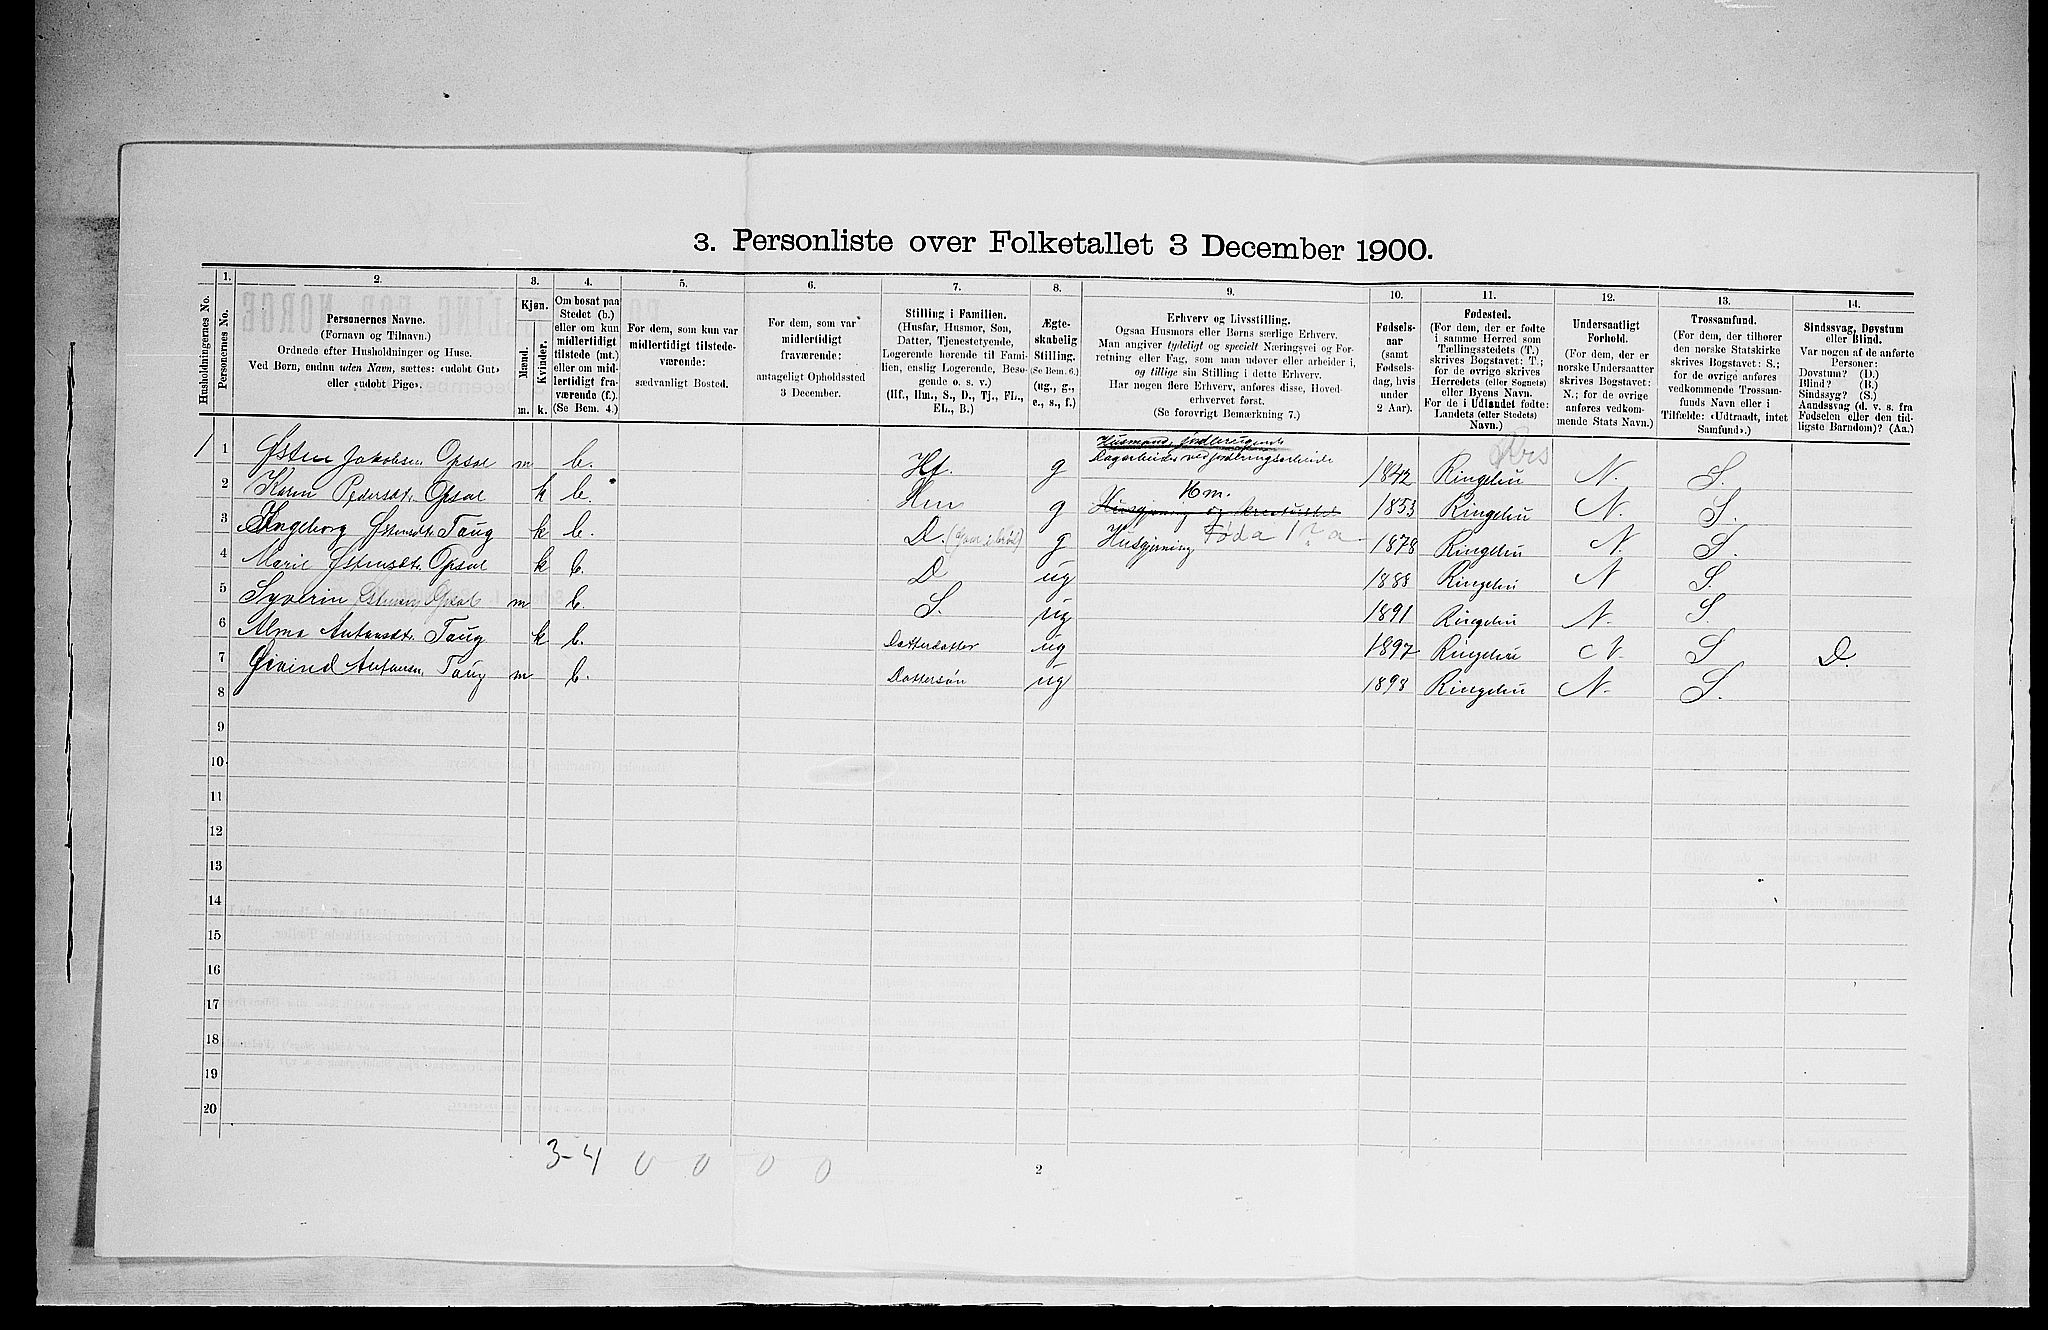 3. Personliste over Folketallet 3 December 1900.
Husholdningernes No.
1.
Personernes No.
2.
Personernes Navne.
(Fornavn og Tilnavn.)
Ordnede efter Husholdninger og Huse.
Ved Børn, endnu uden Navn, sættes: «udøbt Gut»
eller «udøbt Pige».
3.
Kjøn.
Mænd.
Kvinder.
m.
k.
4.
Om bosat paa
Stedet (b.)
eller om kun
midlertidigt
tilstede (mt.)
eller om mid-
lertidigt fra-
værende (f.).
(Se Bem. 4.)
5.
For dem, som kun var
midlertidigt tilstede-
værende:
sædvanligt Bosted.
6.
For dem, som var
midlertidigt
fraværende:
antageligt Opholdssted
3 December.
7.
Stilling i Familien.
(Husfar, Husmor, Søn,
Datter, Tjenestetyende,
Logerende hørende til Fami-
lien, enslig Logerende, Besø-
gende o. s. v.)
(Hf., Hm., S., D., Tj., FL.,
EL., B.)
8.
Ægte-
skabelig
Stilling.
(Se Bem. 6.)
(ug., g.,
e., s., f.)
9.
Erhverv og Livsstilling.
Ogsaa Husmors eller Børns særlige Erhverv.
Man angiver tydeligt og specielt Næringsvei og For-
retning eller Fag, som man udøver eller arbeider i,
og tillige sin Stilling i dette Erhverv.
Har nogen flere Erhverv, anføres disse, Hoved-
erhvervet først.
(Se forøvrigt Bemærkning 7.)
10.
Fødsels-
aar
(samt
Fødsels-
dag, hvis
under
2 Aar).
11.
Fødested.
(For dem, der er fødte
i samme Herred som
Tællingsstedets (T.)
skrives Bogstavet: T.;
for de øvrige skrives
Herredets (eller Sognets)
eller Byens Navn.
For de i Udlandet fødte:
Landets (eller Stedets)
Navn.)
12.
Undersaatligt
Forhold.
(For dem, der er
norske Undersaatter
skrives Bogstavet:
N.; for de øvrige
anføres vedkom-
mende Stats Navn.)
13.
Trossamfund.
(For dem, der tilhører
den norske Statskirke
skrives Bogstavet: S.;
for de øvrige anføres
vedkommende Trossam-
funds Navn eller i
Tilfælde: «Udtraadt, intet
Samfund».)
14.
Sindssvag, Døvstum
eller Blind.
Var nogen af de anførte
Personer:
Døvstum? (D.)
Blind? (B.)
Sindssyg? (S.)
Aandssvag (d. v. s. fra
Fødselen eller den tid-
ligste Barndom)? (Aa.)
Husmand jordbrugende
1 1 Østen Jakobsen Opsal m b. Hf. g Dagarbeider ved jordbrugsarbeide 1842 Ringebu N. S.
Hm.
2 Karen Pedersdt. Opsal k b. Hm g Husgjerning og kreaturstel 1853 Ringebu N. S.
3 Ingeborg Østensdt. Taug k b. D. g Husgjerning Føda 1878 Ringebu N. S.
4 Marie Østensdt. Opsal k b. D ug 1888 Ringebu N S
5 Syverin Østensen Opsal m b. S. ug 1891 Ringebu N. S.
6 Alma Antonsdt. Taug k b. Datterdatter ug 1897 Ringebu N. S D.
7 Øivind Antonsen Taug m b. Dattersøn ug 1898 Ringebu N. S.
8
9
10
11
12
13
14
15
16
17
18
19
20
3-4 0 0 0 0
2